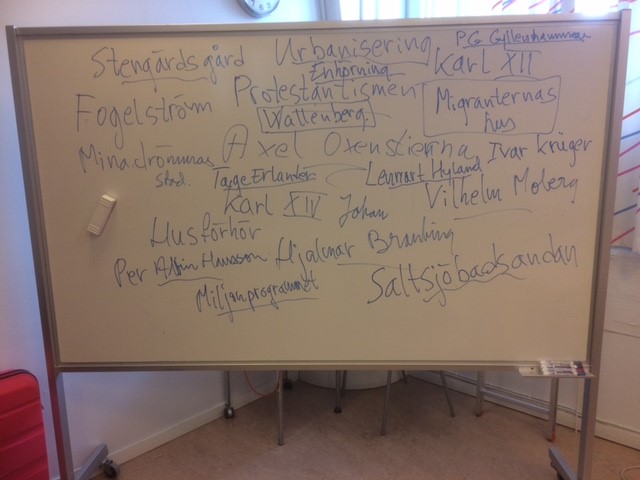 Stengärdsgård Urbanisering P.G Gyllenhammar
Enhörning Karl XII
Fogelström Protestantismen
Wallenberg Migranternas hus
Minadrömmas stad. Axel Oxenstierna Ivar Krüger
Tage Erlander Lennart Hyland
Karl XIV Johan Vilhelm Moberg
Husförhör
Per Albin Hansson Hjalmar Branting
Miljonprogrammet Saltsjöbadsandan